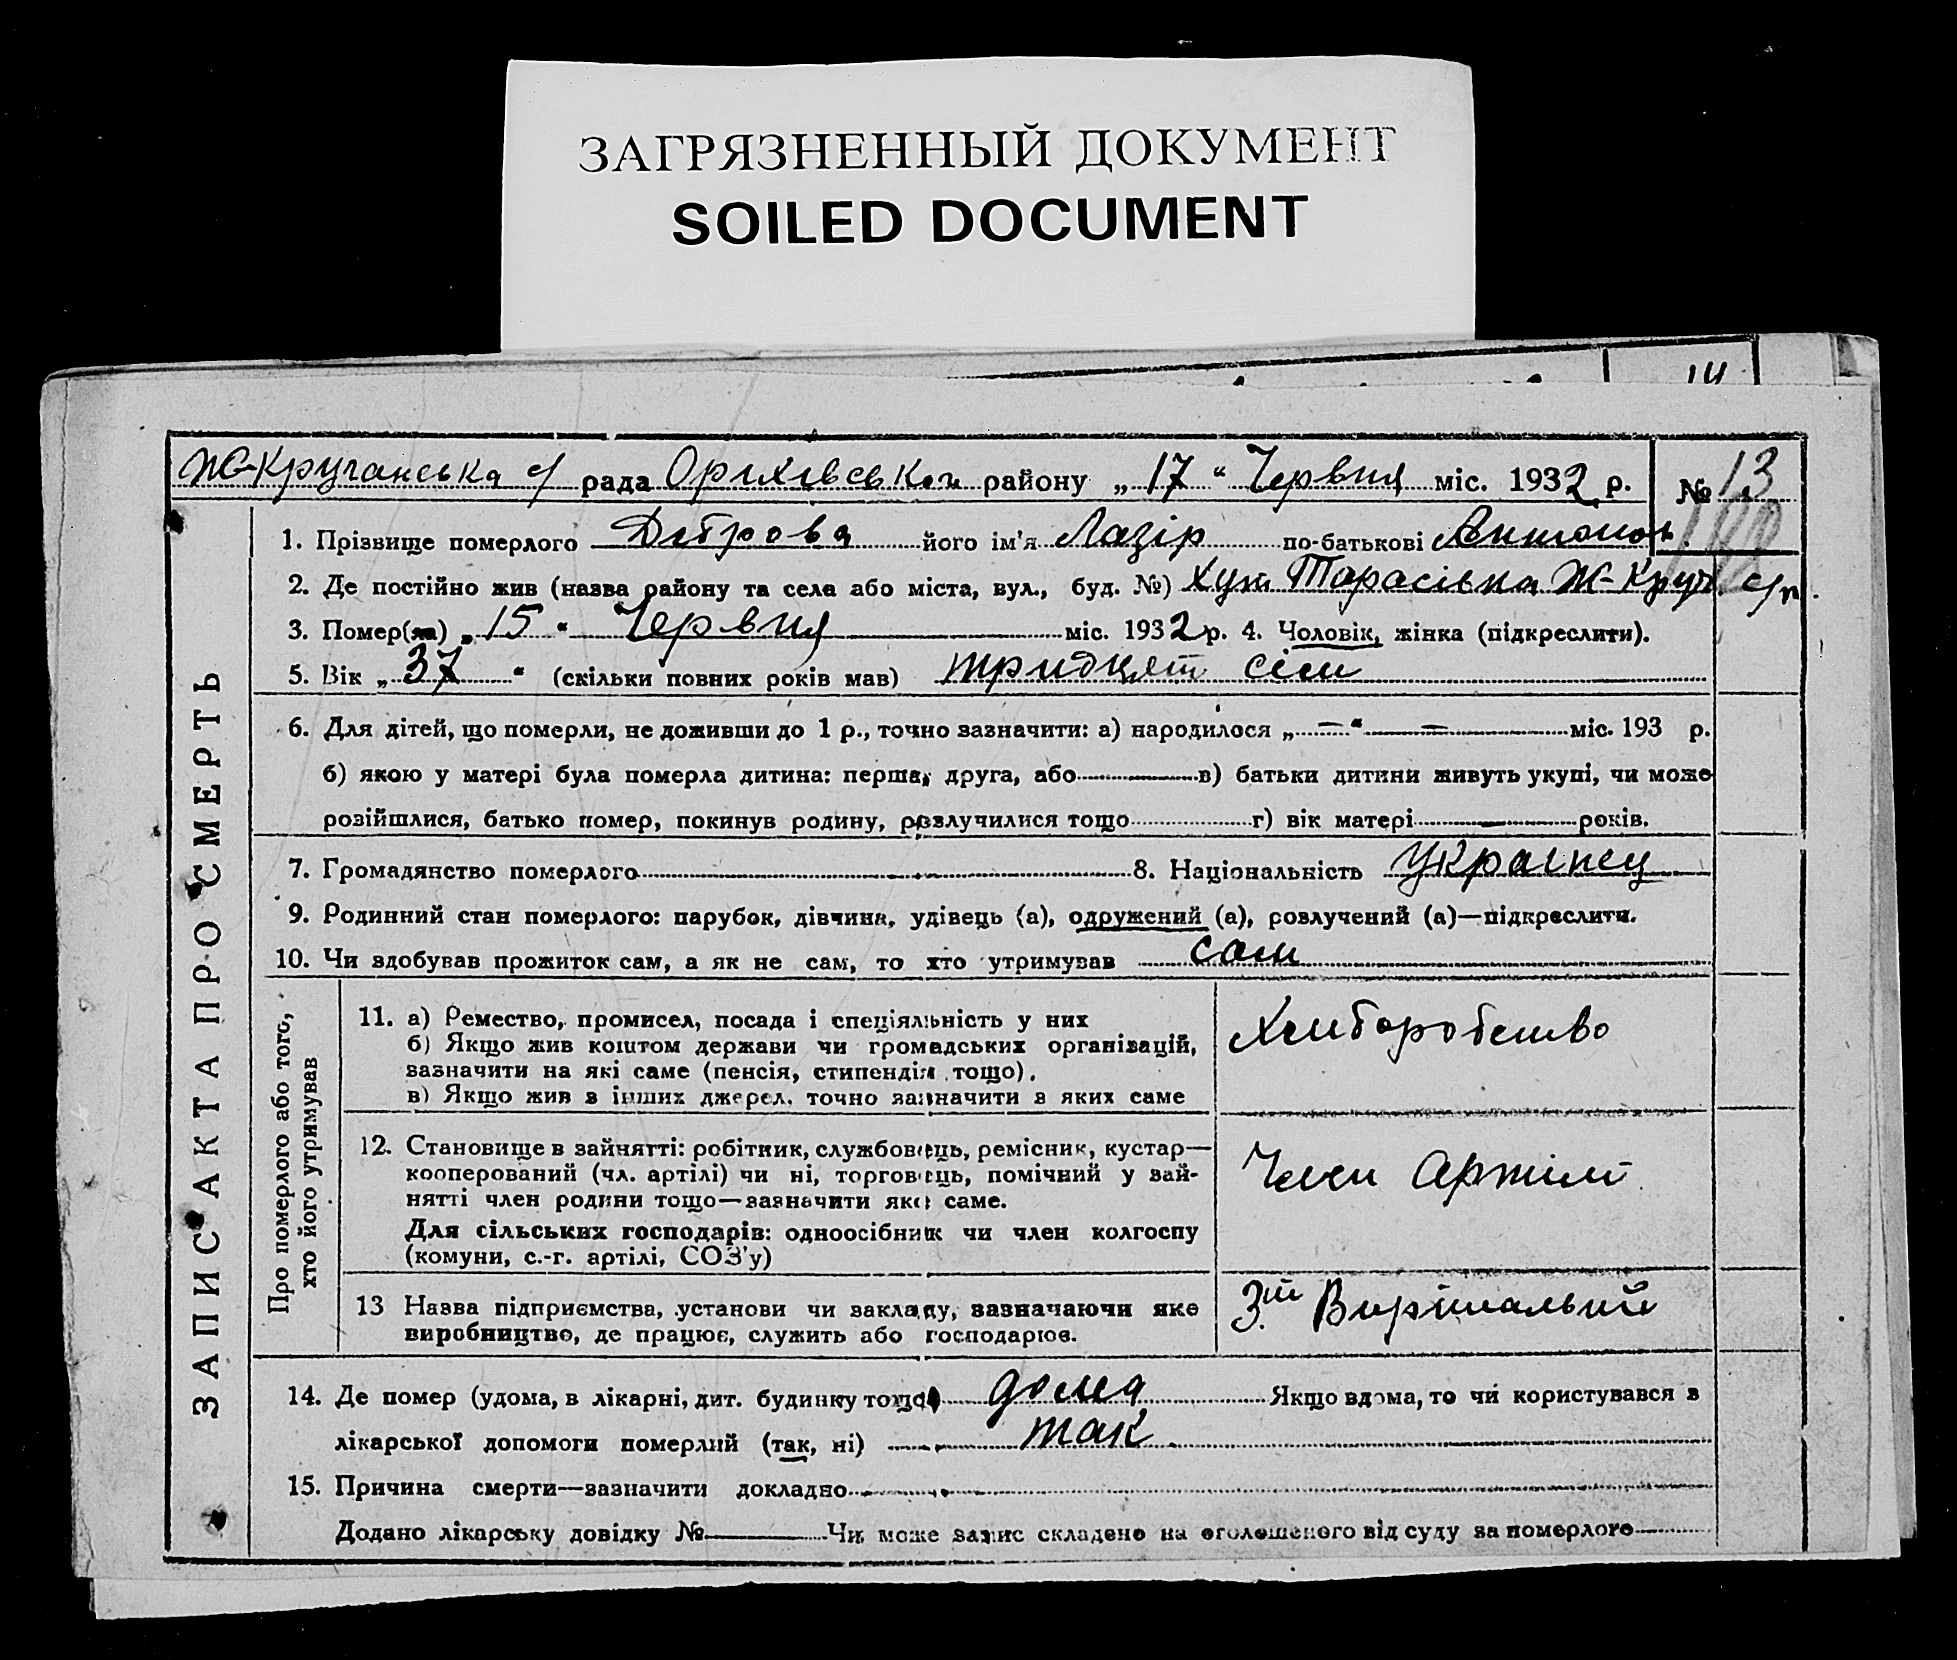 ЗАГРЯЗНЕННЫЙ ДОКУМЕНТ
SOILED DOCUMENT
14
Ж-Кручанська с/ рада Оріхівськой району „17“ Червня міс. 1932 р. № 13
ЗАПИС АКТА ПРО СМЕРТЬ
1. Прізвище померлого його ім'я Лазір по-батькові Антонов.
2. Де постійно жив (назва району та села або міста, вул., буд. №) Хут Тарасівка Ж-Круч с/р.
3. Помер(ла) „15“ Червня міс. 1932 р. 4. Чоловік, жінка (підкреслити).
5. Вік „37“ (скільки повних років мав) тридцят сім
6. Для дітей, що померли, не доживши до 1 р., точно зазначити: а) народилося „—“ — міс. 193 р.
б) якою у матері була померла дитина: перша, друга, або — в) батьки дитини живуть укупі, чи може
розійшлися, батько помер, покинув родину, розлучилися тощо г) вік матері — років.
7. Громадянство померлого 8. Національність Украінец
9. Родинний стан померлого: парубок, дівчина, удівець (а), одружений (а), розлучений (а)—підкреслити.
10. Чи здобував прожиток сам, а як не сам, то хто утримував сам
Про померлого або того,
хто його утримував
11. а) Ремество, промисел, посада і спеціяльність у них
б) Якщо жив коштом держави чи громадських організацій,
зазначити на які саме (пенсія, стипендія тощо).
в) Якщо жив з інших джерел, точно зазначити з яких саме
Хлиборобство
12. Становище в зайнятті: робітник, службовець, ремісник, кустар—
кооперований (чл. артілі) чи ні, торговець, помічний у зай-
нятті член родини тощо—зазначити яке саме.
Для сільських господарів: одноосібник чи член колгоспу
(комуни, с.-г. артілі, СОЗ'у)
Член Артілі
13 Назва підприємства, установи чи закладу, зазначаючи яке
виробництво, де працює, служить або господарює.
3й Вирішальний
14. Де помер (удома, в лікарні, дит. будинку тощо) дома Якщо вдома, то чи користувався з
лікарської допомоги померлий (так, ні) так
15. Причина смерти—зазначити докладно
Додано лікарську довідку № — Чи може запис складено на оголошеного від суду за померлого